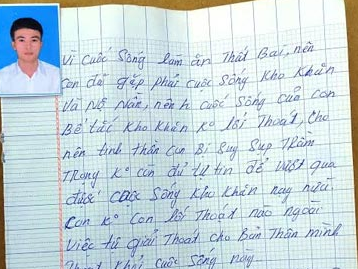 Vì cuộc sống làm ăn Thất Bại, nên
con đã gặp phải cuộc sống khó khăn
Và Nợ Nần, nên cuộc sống của con
Bế tắc khó khăn ko lối Thoát, cho
nên tinh thần con Bị Suy Sụp Trầm
Trọng ko còn đủ tự tin để vượt qua
được cuộc sống khó khăn này nữa.
Con ko còn lối Thoát nào ngoài
Việc tự giải Thoát cho Bản Thân mình
Thoát khỏi cuộc sống này